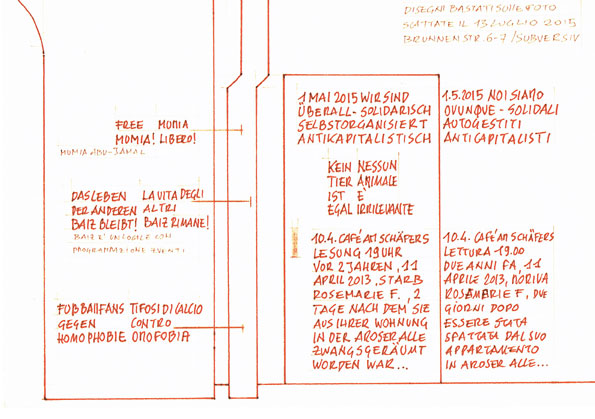 DISEGNI BASATI SULLE FOTO
SCATTATE IL 13 LUGLIO 2015
BRUNNENSTR. 6-7 / SUBVERSIV
FREE MUMIA
MUMIA! LIBERO!
MUMIA ABU-JAMAL
DAS LEBEN LA VITA DEGLI
DER ANDEREN ALTRI
BAIZ BLEIBT! BAIZ RIMANE!
BAIZ E' UN LOCALE CON
PROGRAMMAZIONE EVENTI
FUßBALLFANS TIFOSI DI CALCIO
GEGEN CONTRO
HOMOPHOBIE OMOFOBIA
1 MAI 2015 WIR SIND
ÜBERALL - SOLIDARISCH
SELBSTORGANISIERT
ANTIKAPITALISTISCH
1.5.2015 NOI SIAMO
OVUNQUE - SOLIDALI
AUTOGESTITI
ANTICAPITALISTI
KEIN NESSUN
TIER ANIMALE
IST E'
EGAL IRRILEVANTE
10.4. CAFÉ AM SCHÄFERS
LESUNG 19 UHR
VOR 2 JAHREN, 11
APRIL 2013. STARB
ROSEMARIE F., 2
TAGE NACH DEM SIE
AUS IHRER WOHNUNG
IN DER AROSER ALLE
ZWANGSGERÄUMT
WORDEN WAR...
10.4. CAFÉ AM SCHÄFERS
LETTURA 19.00
DUE ANNI FA, 11
APRILE 2013, MORIVA
ROSEMARIE F, DUE
GIORNI DOPO
ESSERE STATA
SFRATTATA DAL SUO
APPARTAMENTO
IN AROSER ALLE...